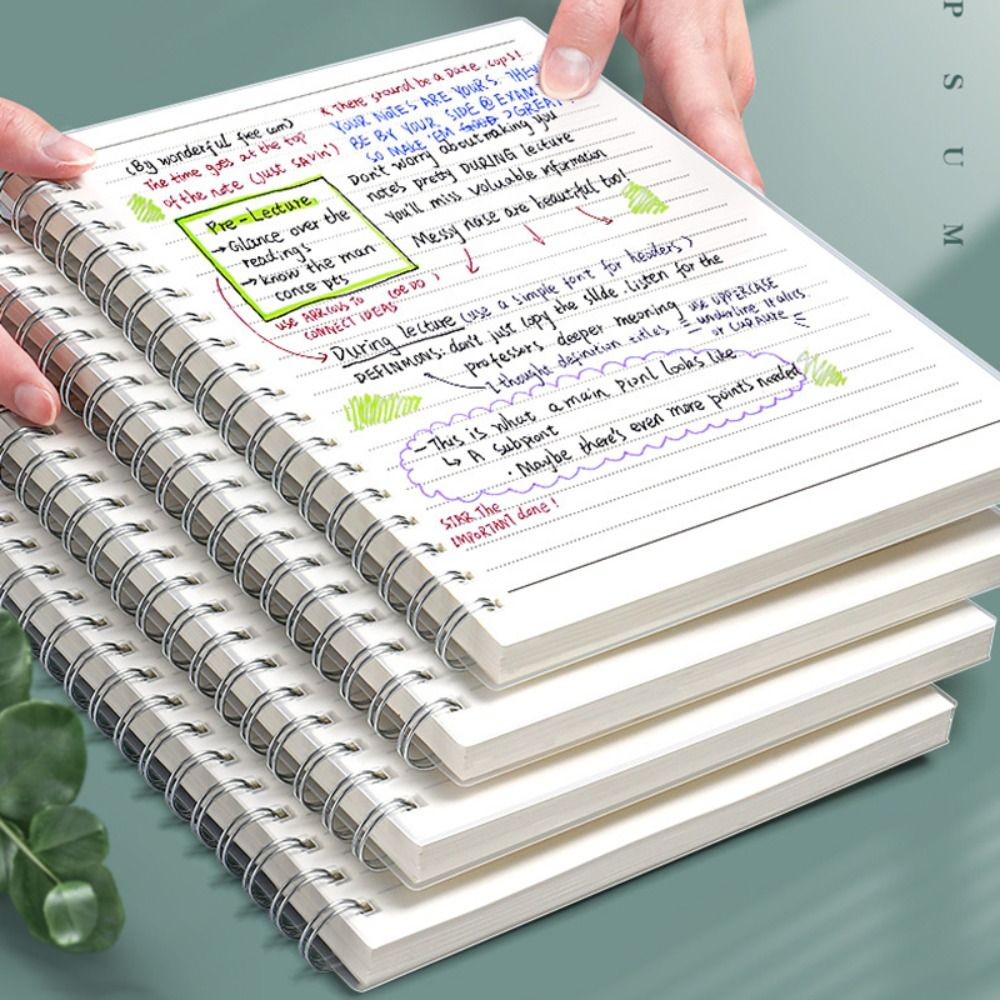 * There should be a Date, oops!
YOUR NOTES ARE YOURS. THEY
BE BY YOUR SIDE @ EXAM
SO MAKE EM GOOD > GREAT!
(By wonderful free (am)
The time goes at the top
of the note (just SAYIN')
Don't worry about making you
notes pretty DURING lecture
You'll miss valuable information
Messy nose are beautiful too!
Pre-Lecture,
→ Glance over the
readings
→ know the man
conce pts
use ARROWS TO
CONNECT IDEAS
During lecture (use a simple font for headers)
DEFINMONS: don't just copy the slide. Listen for the
professors deeper meaning
use UPPERCASE
underline Italics
or CURAURE
1-thought definition titles
- This is what a main Pionl looks like
↳ A subpont
• Maybe there's even more points needed
STAR The
IMPORTANT done!
P S U M